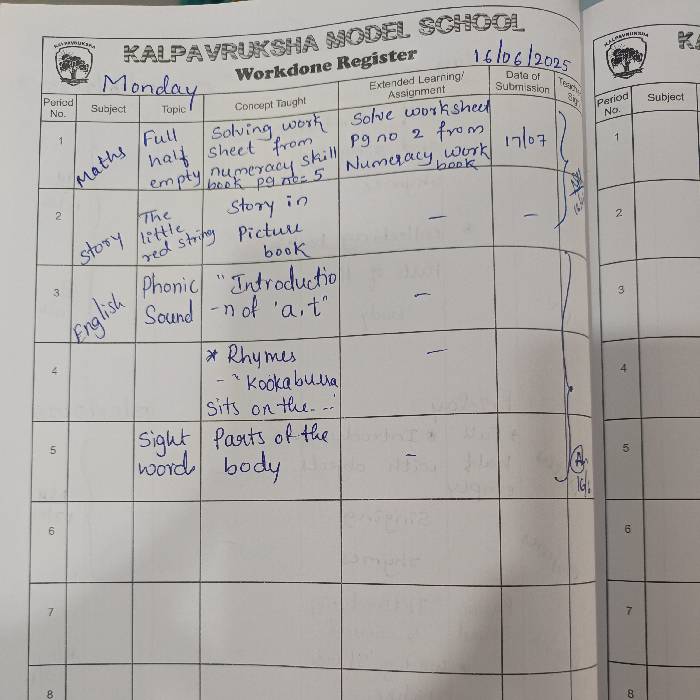 KALPAVRUKSHA
KALPAVRUKSHA MODEL SCHOOL
Workdone Register
16/06/2025
Monday
Period No.
Subject
Topic
Concept Taught
Extended Learning/
Assignment
Date of
Submission
1
Maths
Full
half
empty
Solving work
sheet from
numeracy skill
book pg no = 5
Solve worksheet
pg no 2 from
Numeracy work
book
17/07
2
Story
The
little
red string
Story in
Picture
book
—
—
3
English
Phonic
Sound
"Introductio
-n of 'a, t"
—
4
* Rhymes
- "Kookaburra
Sits on the...
—
5
Sight
word
Parts of the
body
-
6
7
8
KALPAVRUKSHA
Period
No.
Subject
1
2
3
4
5
6
7
8